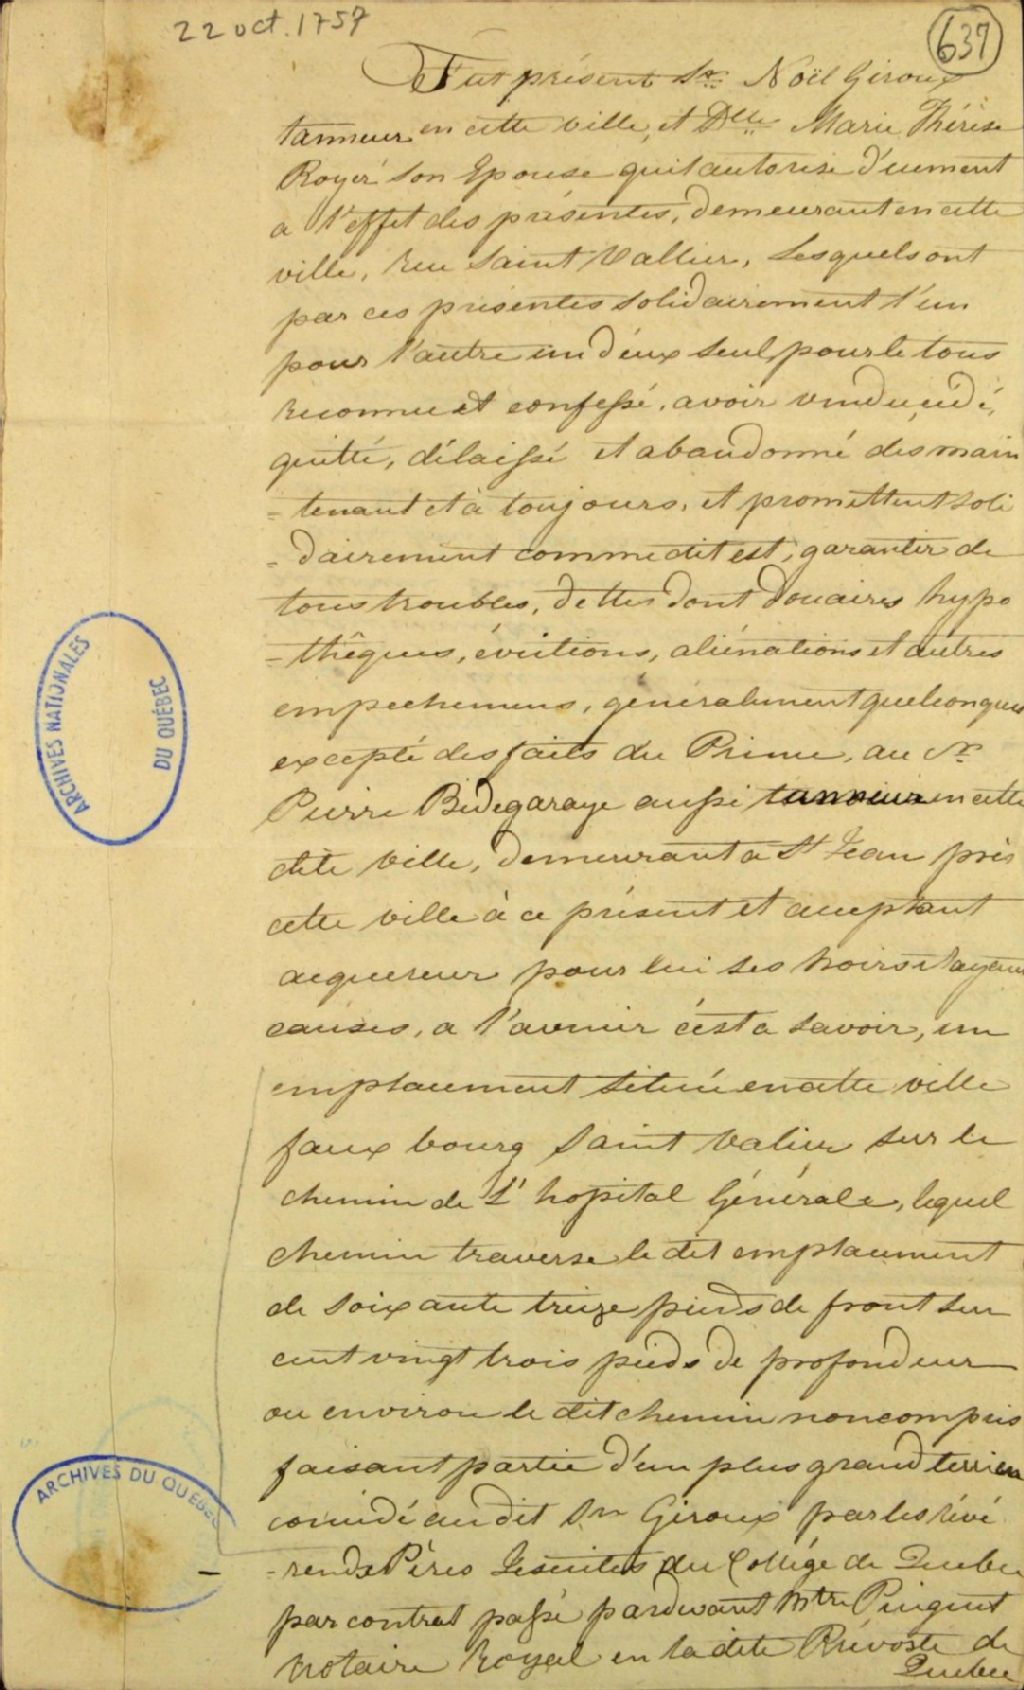 22 oct. 1757
637
Fut présent Sr. Noël Giroux
tanneur en cette ville, et Dlle Marie Thérèse
Royer son Epouse quil autorise d'uement
a l'effet des présentes, demeurant en cette
ville, rue Saint Vallier, Lesquels ont
par ces présentes solidairement l'un
pour l'autre un d'eux seul pour le tous
reconnu et confessé, avoir vendu, cédé,
quitté, délaissé et abandonné dès main
= tenant et à toujours, et promettent soli
= dairement comme dit est, garantir de
tous troubles, dettes dont douaires hypo
= thêques, évictions, aliénations et autres
empechemens, généralement quelconques
excepté des faits du Prince, au Sr
Pierre Bidegaraye aussi tanneur en cette
dite ville, demeurant a St Jean près
cette ville à ce présent et acceptant
acquereur pour lui ses hoirs et ayans
causes, a l'avenir c'est a savoir, un
emplacement situé en cette ville
faux bourg Saint Valier sur le
chemin de L'hopital Générale, lequel
chemin traverse le dit emplacement
de soixante treize pieds de front sur
cent vingt trois pieds de profondeur
ou environ le dit chemin non compris
faisant partie d'un plus grand terrien
concédé au dit Sr Giroux par les révé
= rends Pères Jesuites du Collége de Quebec
par contrat passé pardevant Mtre Pinguet
notaire Royal en la dite Prévosté de
Quebec
ARCHIVES NATIONALES
DU QUÉBEC
ARCHIVES DU QUÉBEC